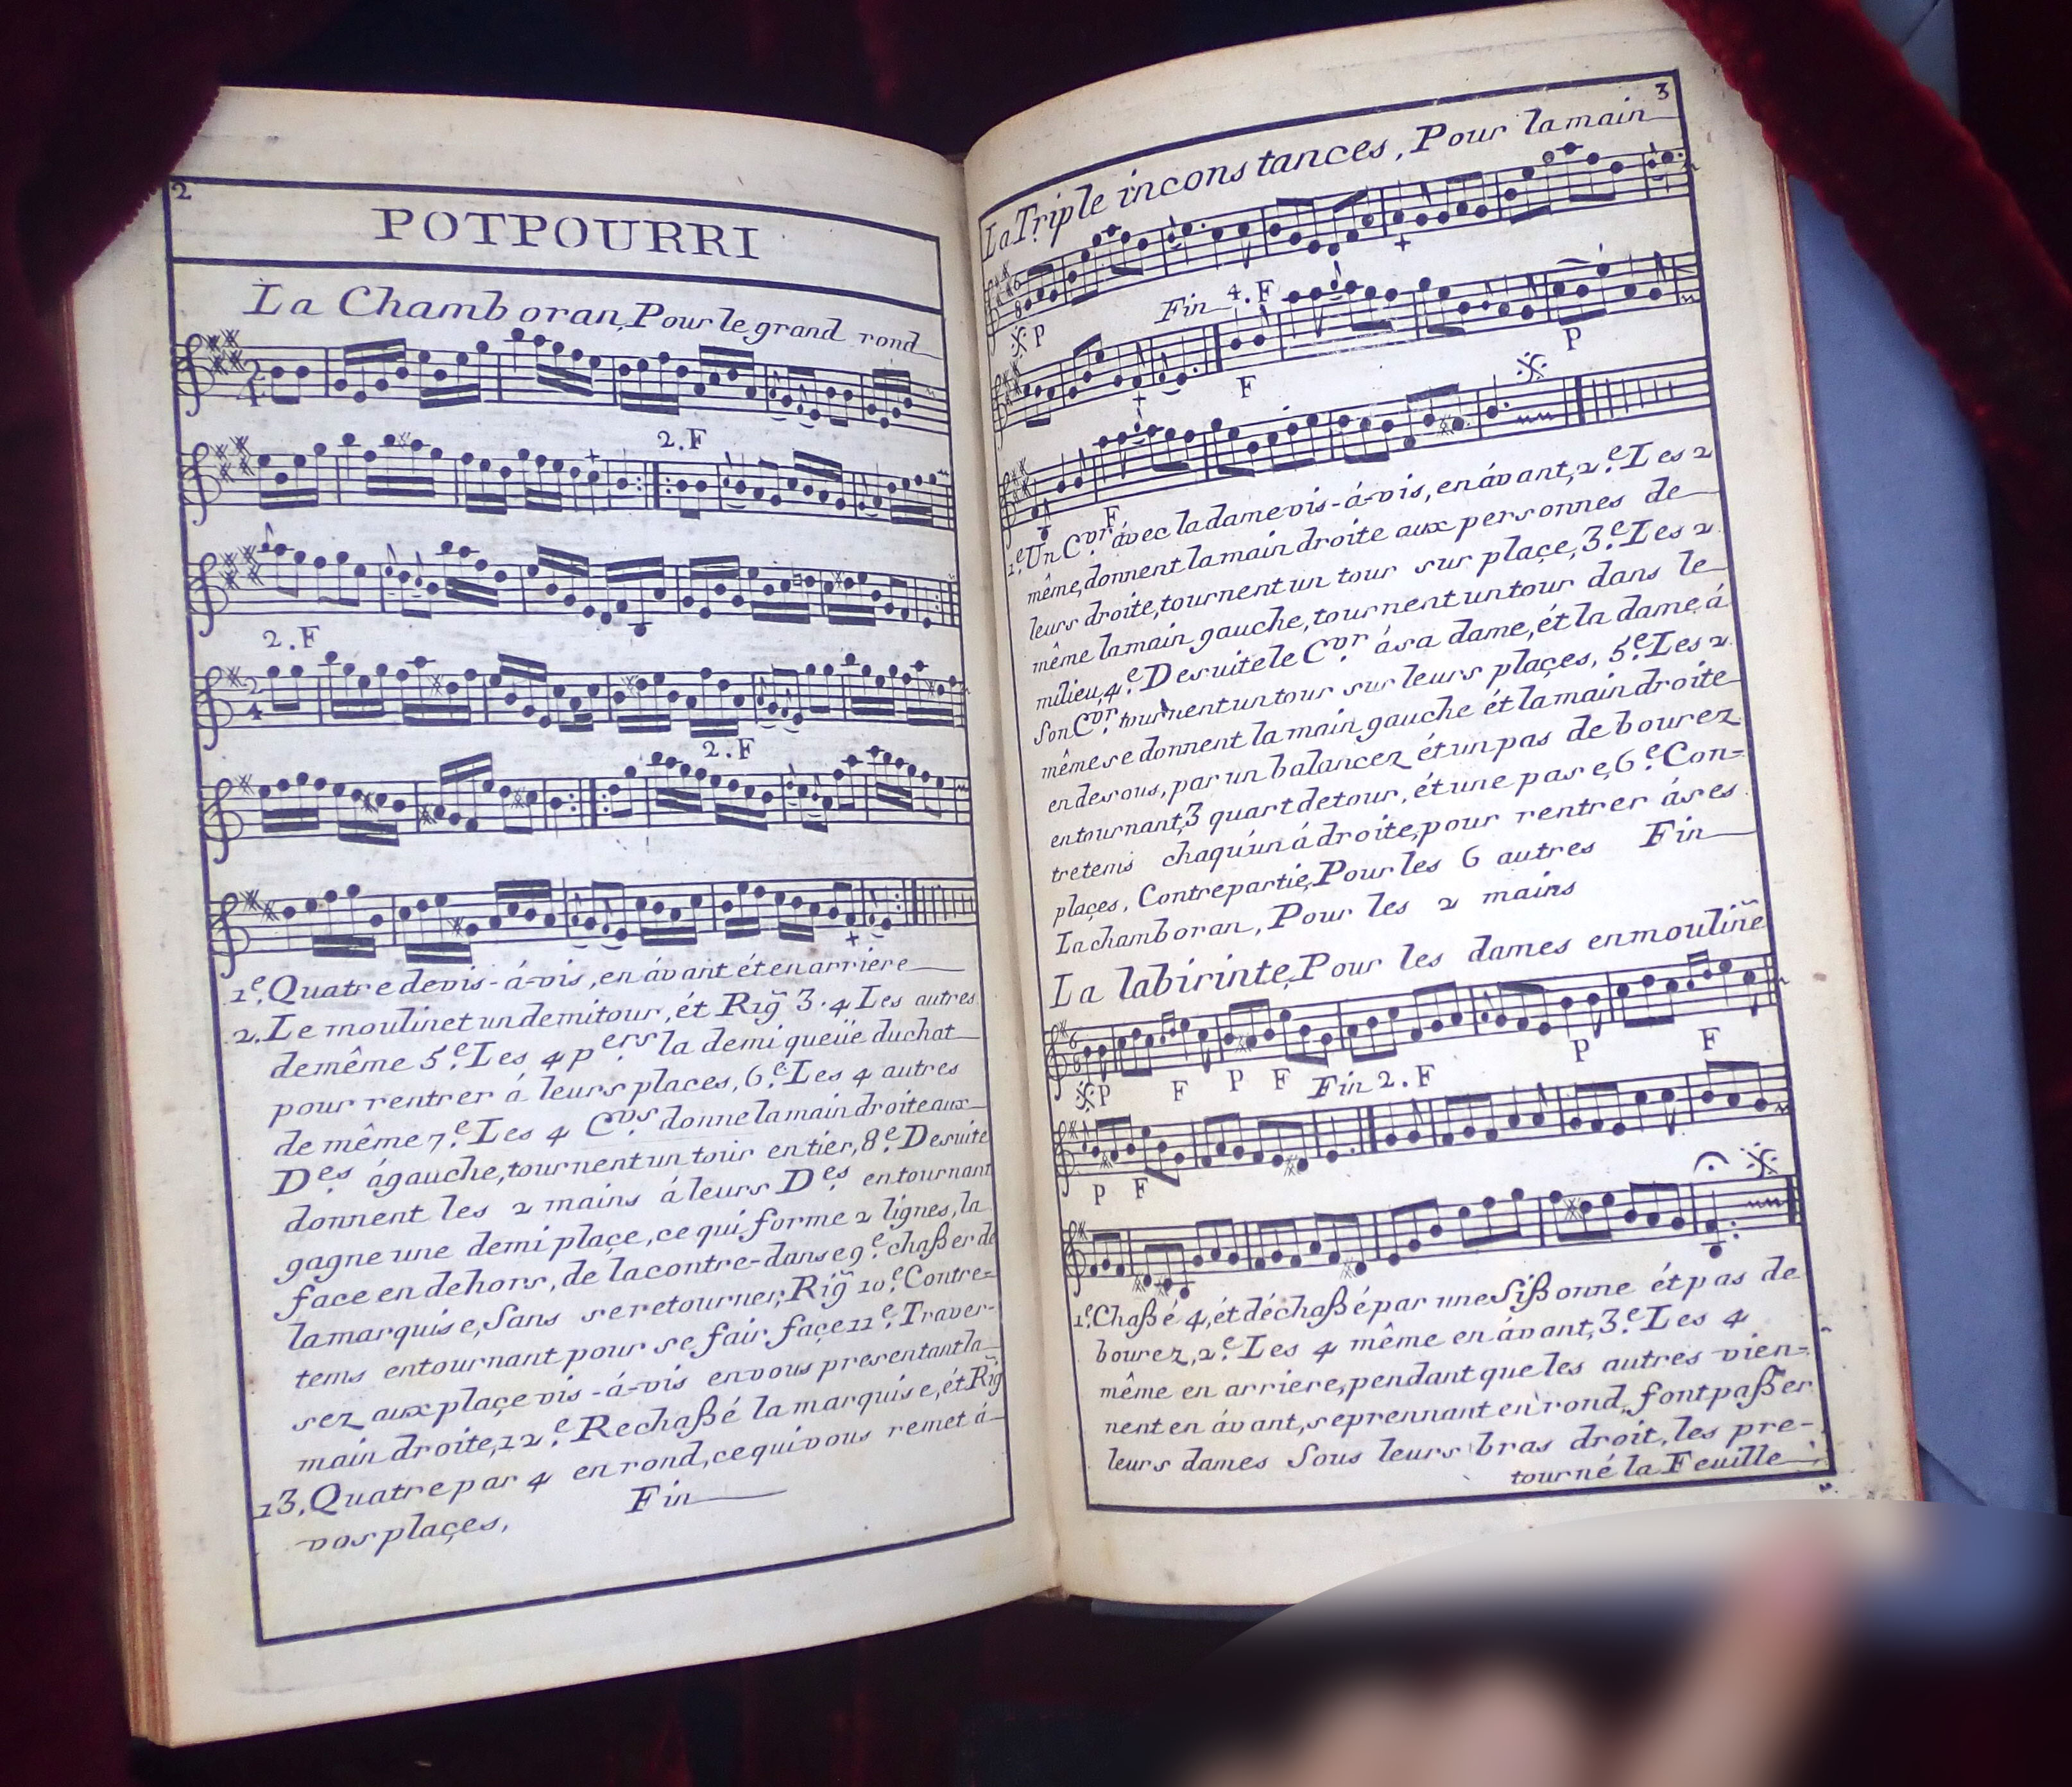 2
POTPOURRI
La Chamboran, Pour le grand rond
2.F
2.F
2.F
1.e Quatre de vis-á-vis, en ávant ét en arriére
2. Le moulinet un demi tour, ét Rig̃ 3.4 Les autres
de même 5.e Les 4 pers la demi queüe du chat
pour rentrer á leurs places, 6.e Les 4 autres
de même 7.e Les 4 Cvrs donne la main droite aux
Des á gauche, tournent un tour entier, 8.e De suite
donnent les 2 mains á leurs Des en tournant
gagne une demi plaçe, ce qui forme 2 lignes, la
face en dehors, de la contre-danse 9.e chaßer de
la marquise, Sans se retourner, Rig̃ 10.e Contre=
tems en tournant pour se fair façe 11.e Traver-
sez aux plaçe vis-á-vis en vous presentant la
main droite, 12.e Rechaßé la marquise, ét Rig̃
13. Quatre par 4 en rond, ce qui vous remet á
vos plaçes, Fin
3
La Triple inconstances, Pour la main
P Fin 4.F
F P
F
1.e Un Cvr ávec la dame vis-á-vis, en ávant, 2.e Les 2
même, donnent la main droite aux personnes de
leurs droite, tournent un tour sur plaçe, 3.e Les 2
même la main gauche, tournent un tour dans le
milieu, 4.e De suite le Cvr á sa dame, ét la dame, á
Son Cvr tournent un tour sur leurs plaçes, 5.e Les 2
même se donnent la main gauche ét la main droite
en desous, par un balancez ét un pas de bourez
en tournant, 3 quart de tour, ét une pase, 6.e Con=
tretems chaqu'un á droite, pour rentrer á ses
plaçes, Contre partie, Pour les 6 autres Fin
La chamboran, Pour les 2 mains
La labirinte, Pour les dames en moulinẽ
P F P F Fin 2.F P F
P F
1.e Chaßé 4, ét déchaßé par une Sißonne ét pas de
bourez, 2.e Les 4 même en ávant, 3.e Les 4
même en arriere, pendant que les autres vien=
nent en ávant, se prennant en rond, font paßer
leurs dames Sous leurs bras droit, les pre-
tourné la Feuille